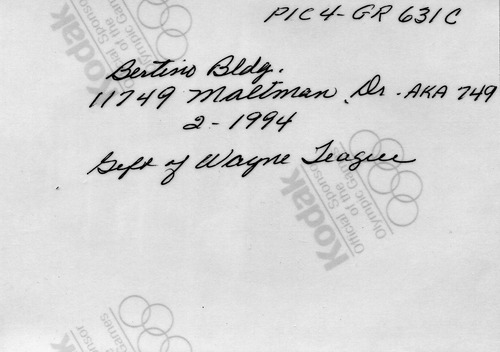 PIC4-GR 631C
Bertino Bldg.
11749 Maltman Dr. AKA 749
2-1994
Gift of Wayne Teague
Kodak
Official Sponsor
of the
Olympic Games
Kodak
Official Sponsor
of the
Olympic Games
Games
sor